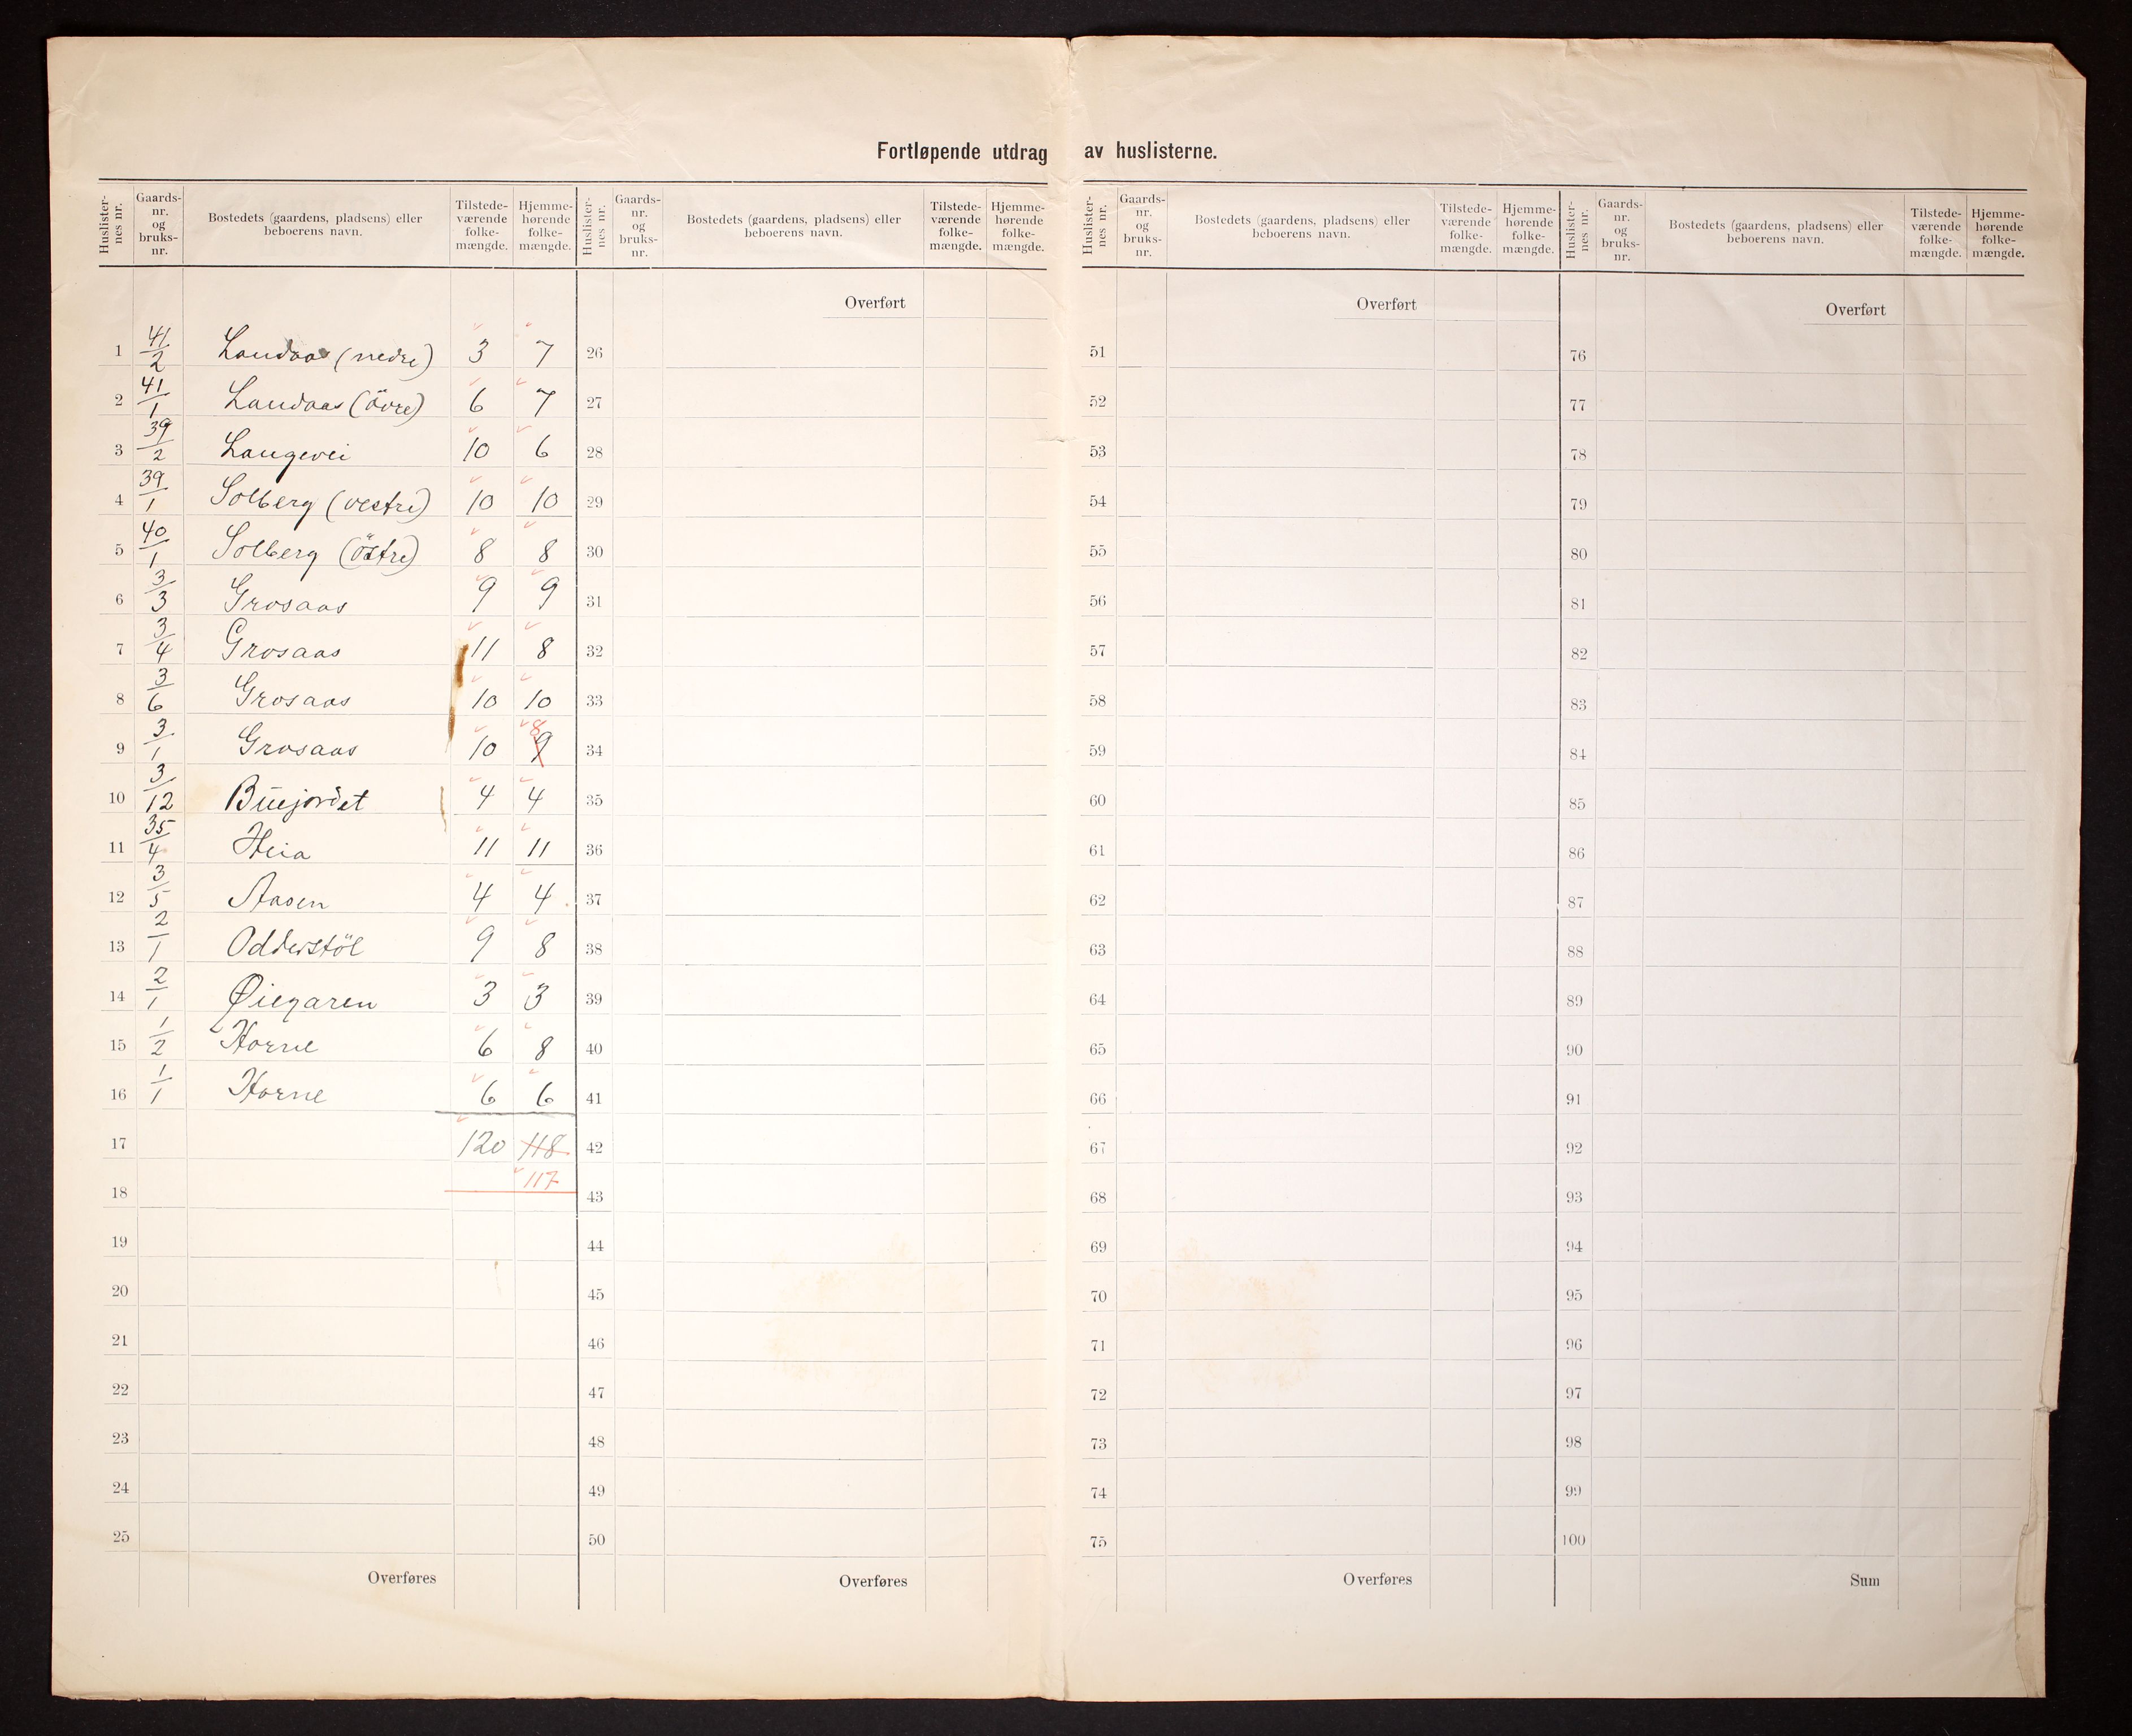 Fortløpende utdrag av huslisterne.
Huslister-nes nr. Gaards-nr. og bruks-nr. Bostedets (gaardens, pladsens) eller beboerens navn. Tilstede-værende folke-mængde. Hjemme-hørende folke-mængde.
Huslister-nes nr. Gaards-nr. og bruks-nr. Bostedets (gaardens, pladsens) eller beboerens navn. Tilstede-værende folke-mængde. Hjemme-hørende folke-mængde.
Huslister-nes nr. Gaards-nr. og bruks-nr. Bostedets (gaardens, pladsens) eller beboerens navn. Tilstede-værende folke-mængde. Hjemme-hørende folke-mængde.
Huslister-nes nr. Gaards-nr. og bruks-nr. Bostedets (gaardens, pladsens) eller beboerens navn. Tilstede-værende folke-mængde. Hjemme-hørende folke-mængde.
1 41/2 Landaas (nedre) 3 7
2 41/1 Landaas (övre) 6 7
3 39/2 Langevei 10 6
4 39/1 Solberg (vestre) 10 10
5 40/1 Solberg (östre) 8 8
6 3/3 Grosaas 9 9
7 3/4 Grosaas 11 8
8 3/6 Grosaas 10 10
9 3/1 Grosaas 10 9 8
10 3/12 Buejordet 4 4
11 35/4 Heia 11 11
12 3/5 Aasen 4 4
13 2/1 Odderstöl 9 8
14 2/1 Øiegaren 3 3
15 1/2 Horne 6 8
16 1/1 Horne 6 6
17 120 118
117
18
19
20
21
22
23
24
25
Overføres
Overført
26
27
28
29
30
31
32
33
34
35
36
37
38
39
40
41
42
43
44
45
46
47
48
49
50
Overføres
Overført
51
52
53
54
55
56
57
58
59
60
61
62
63
64
65
66
67
68
69
70
71
72
73
74
75
Overføres
Overført
76
77
78
79
80
81
82
83
84
85
86
87
88
89
90
91
92
93
94
95
96
97
98
99
100
Sum